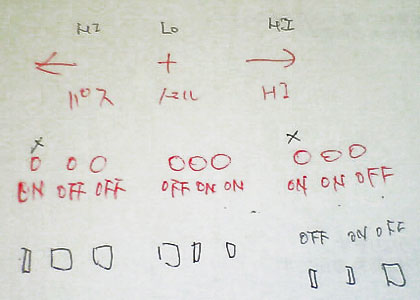 HI Lo HI
← + →
パス ノーマル HI
× ×
○ ○ ○ ○○○ ○ ○ ○
ON OFF OFF OFF ON ON ON ON OFF
OFF ON OFF